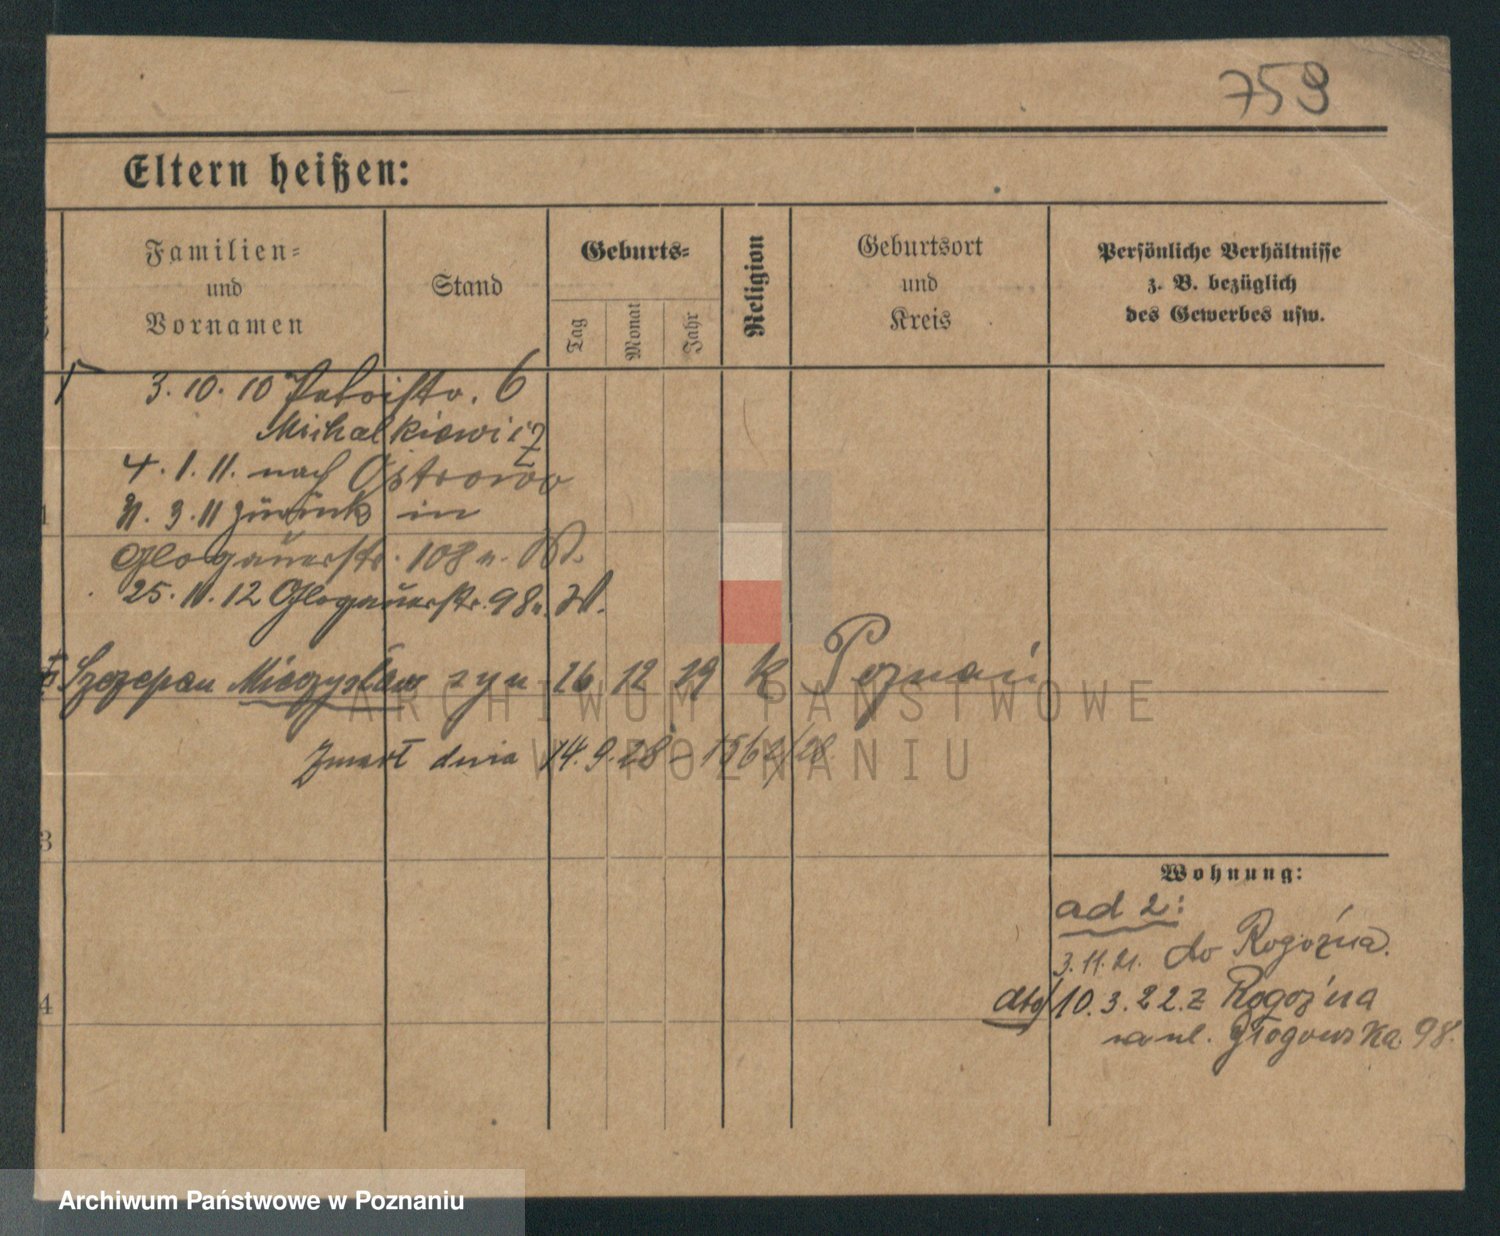 759
Eltern heißen:
Familien=
und
Vornamen
Stand
Geburts=
Tag
Monat
Jahr
Religion
Geburtsort
und
Kreis
Persönliche Verhältnisse
z. B. bezüglich
des Gewerbes usw.
3. 10. 10 6
Michalkiewicz
4. 1. 11. nach Ostrowo
3. 11 zurück in
Glogauerstr. 108
25. 11. 12 Glogauerstr. 98
Szczepan Mieczysław syn 26 12 29 k Poznań
Zmarł dnia 14. 9. 28
3
4
Wohnung:
ad 2:
3. 11. 21. do Rogoźna.
10. 3. 22. z Rogoźna
na ul. Głogowska 98.
ARCHIWUM PAŃSTWOWE
W POZNANIU
Archiwum Państwowe w Poznaniu